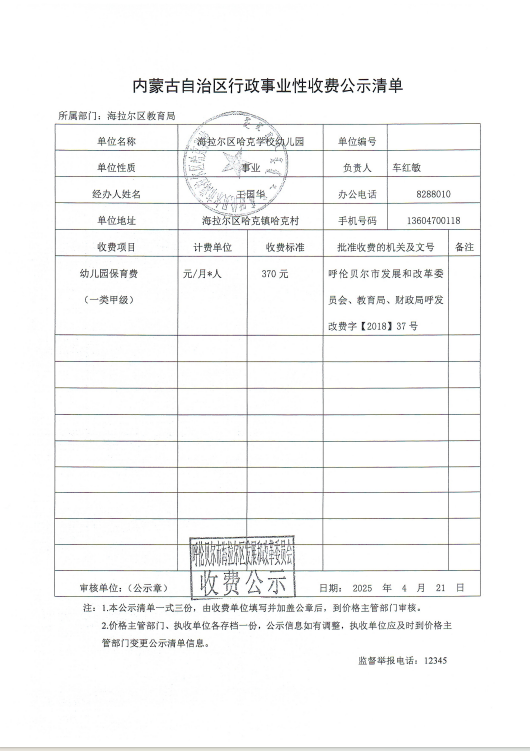 内蒙古自治区行政事业性收费公示清单
所属部门：海拉尔区教育局
单位名称 海拉尔区哈克学校幼儿园 单位编号
单位性质 事业 负责人 车红敏
经办人姓名 王国华 办公电话 8288010
单位地址 海拉尔区哈克镇哈克村 手机号码 13604700118
收费项目 计费单位 收费标准 批准收费的机关及文号 备注
幼儿园保育费 元/月*人 370 元 呼伦贝尔市发展和改革委
（一类甲级） 员会、教育局、财政局呼发
改费字【2018】37 号
呼伦贝尔市海拉尔区发展和改革委员会
收费公示
审核单位：（公示章） 日期： 2025 年 4 月 21 日
注：1.本公示清单一式三份，由收费单位填写并加盖公章后，到价格主管部门审核。
2.价格主管部门、执收单位各存档一份，公示信息如有调整，执收单位应及时到价格主
管部门变更公示清单信息。
监督举报电话：12345